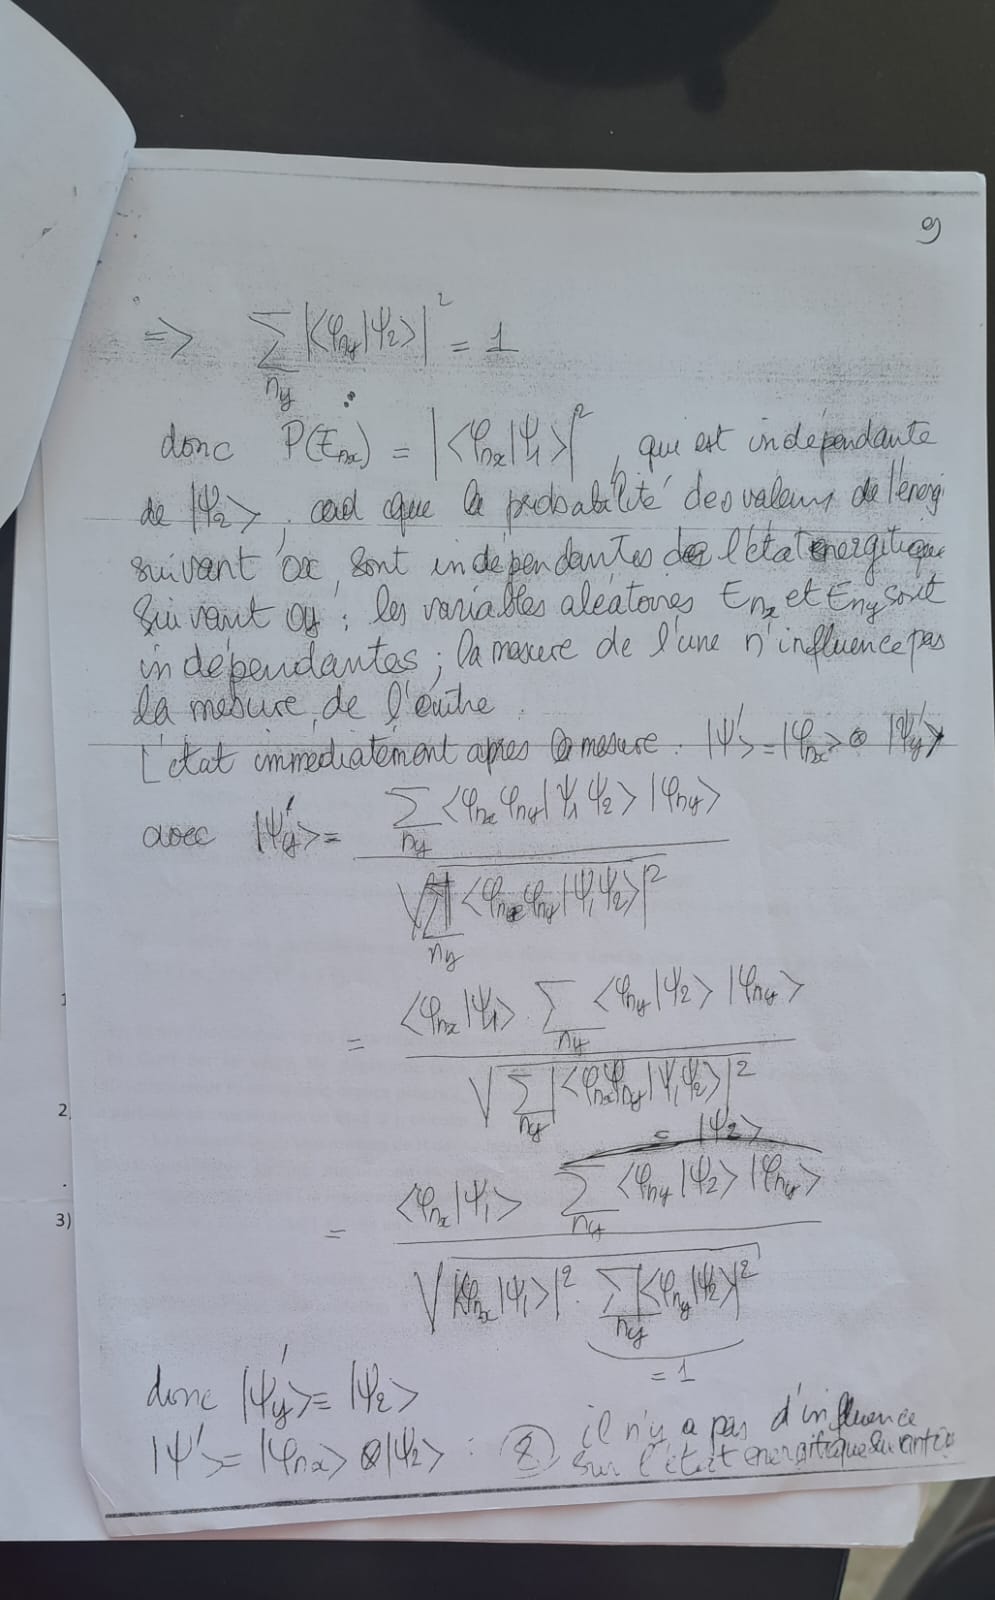 9
=> ∑_{ny} |<φ_{ny}|Ψ_2>|² = 1
donc P(E_{nx}) = |<φ_{nx}|Ψ_1>|², qui est indépendante
de |Ψ_2>, cad que la probabilité des valeurs de l'énergi
suivant ox, sont indépendantes de l'état energitique
suivant oy : les variables aléatoires E_{nx} et E_{ny} sont
indépendantes ; la mesure de l'une n'influence pas
la mesure de l'autre.
L'état immédiatement après la mesure : |Ψ'> = |φ_{nx}> ⊗ |Ψ'_y>
avec |Ψ'_y> = ∑_{ny} <φ_{nx} φ_{ny}|Ψ_1 Ψ_2> |φ_{ny}>
√∑_{ny} |<φ_{nx} φ_{ny}|Ψ_1 Ψ_2>|²
= <φ_{nx}|Ψ_1> ∑_{ny} <φ_{ny}|Ψ_2> |φ_{ny}>
√∑_{ny} |<φ_{nx} φ_{ny}|Ψ_1 Ψ_2>|²
= |Ψ_2>
= <φ_{nx}|Ψ_1> ∑_{ny} <φ_{ny}|Ψ_2> |φ_{ny}>
√|<φ_{nx}|Ψ_1>|² . ∑_{ny} |<φ_{ny}|Ψ_2>|²
= 1
donc |Ψ'_y> = |Ψ_2>
|Ψ'> = |φ_{nx}> ⊗ |Ψ_2> : il n'y a pas d'influence
sur l'état energitique suivant
2
3)